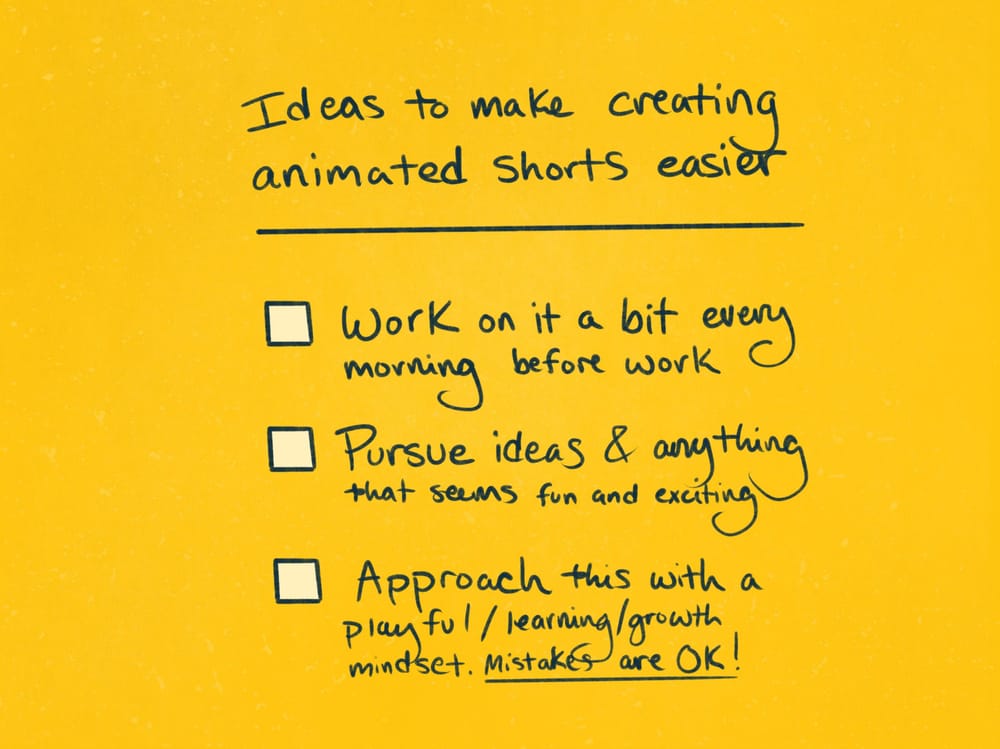 Ideas to make creating
animated shorts easier
Work on it a bit every
morning before work
Pursue ideas & anything
that seems fun and exciting
Approach this with a
playful/learning/growth
mindset. Mistakes are OK!